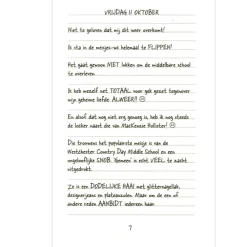 VRIJDAG 11 OKTOBER
Niet te geloven dat mij dit weer overkomt!
Ik sta in de meisjes-wc helemaal te FLIPPEN!
Het gaat gewoon NIET lukken om de middelbare school
te overleven.
Ik heb mezelf net TOTAAL voor gek gezet tegenover
mijn geheime liefde. ALWEER!! ☹
En alsof dat nog niet erg genoeg is, heb ik nog steeds
de locker naast die van MacKenzie Hollister! ☹
Die trouwens het populairste meisje is van de
Westchester Country Day Middle School en een
ongelooflijke SNOB. 'Gemeen' is echt VEEL te zacht
uitgedrukt.
Ze is een DODELIJKE HAAI met glitternagellak,
designerjeans en plateauzolen. Maar om de een of
andere reden AANBIDT iedereen haar.
7